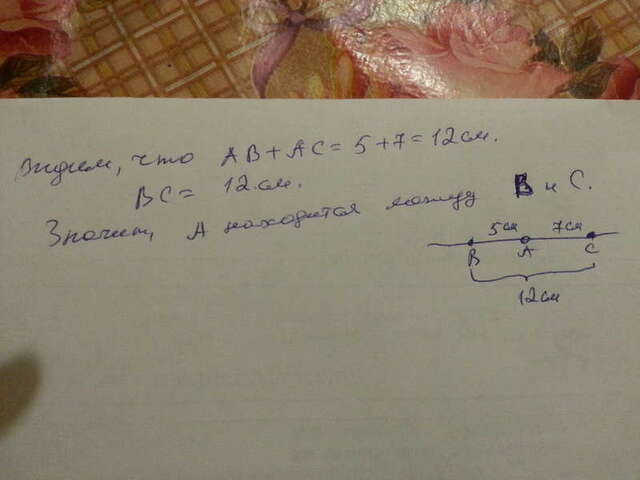 Видим, что AB + AC = 5 + 7 = 12 см.
BC = 12 см.
Значит, A находится между B и C.
5см 7см
B A C
12см